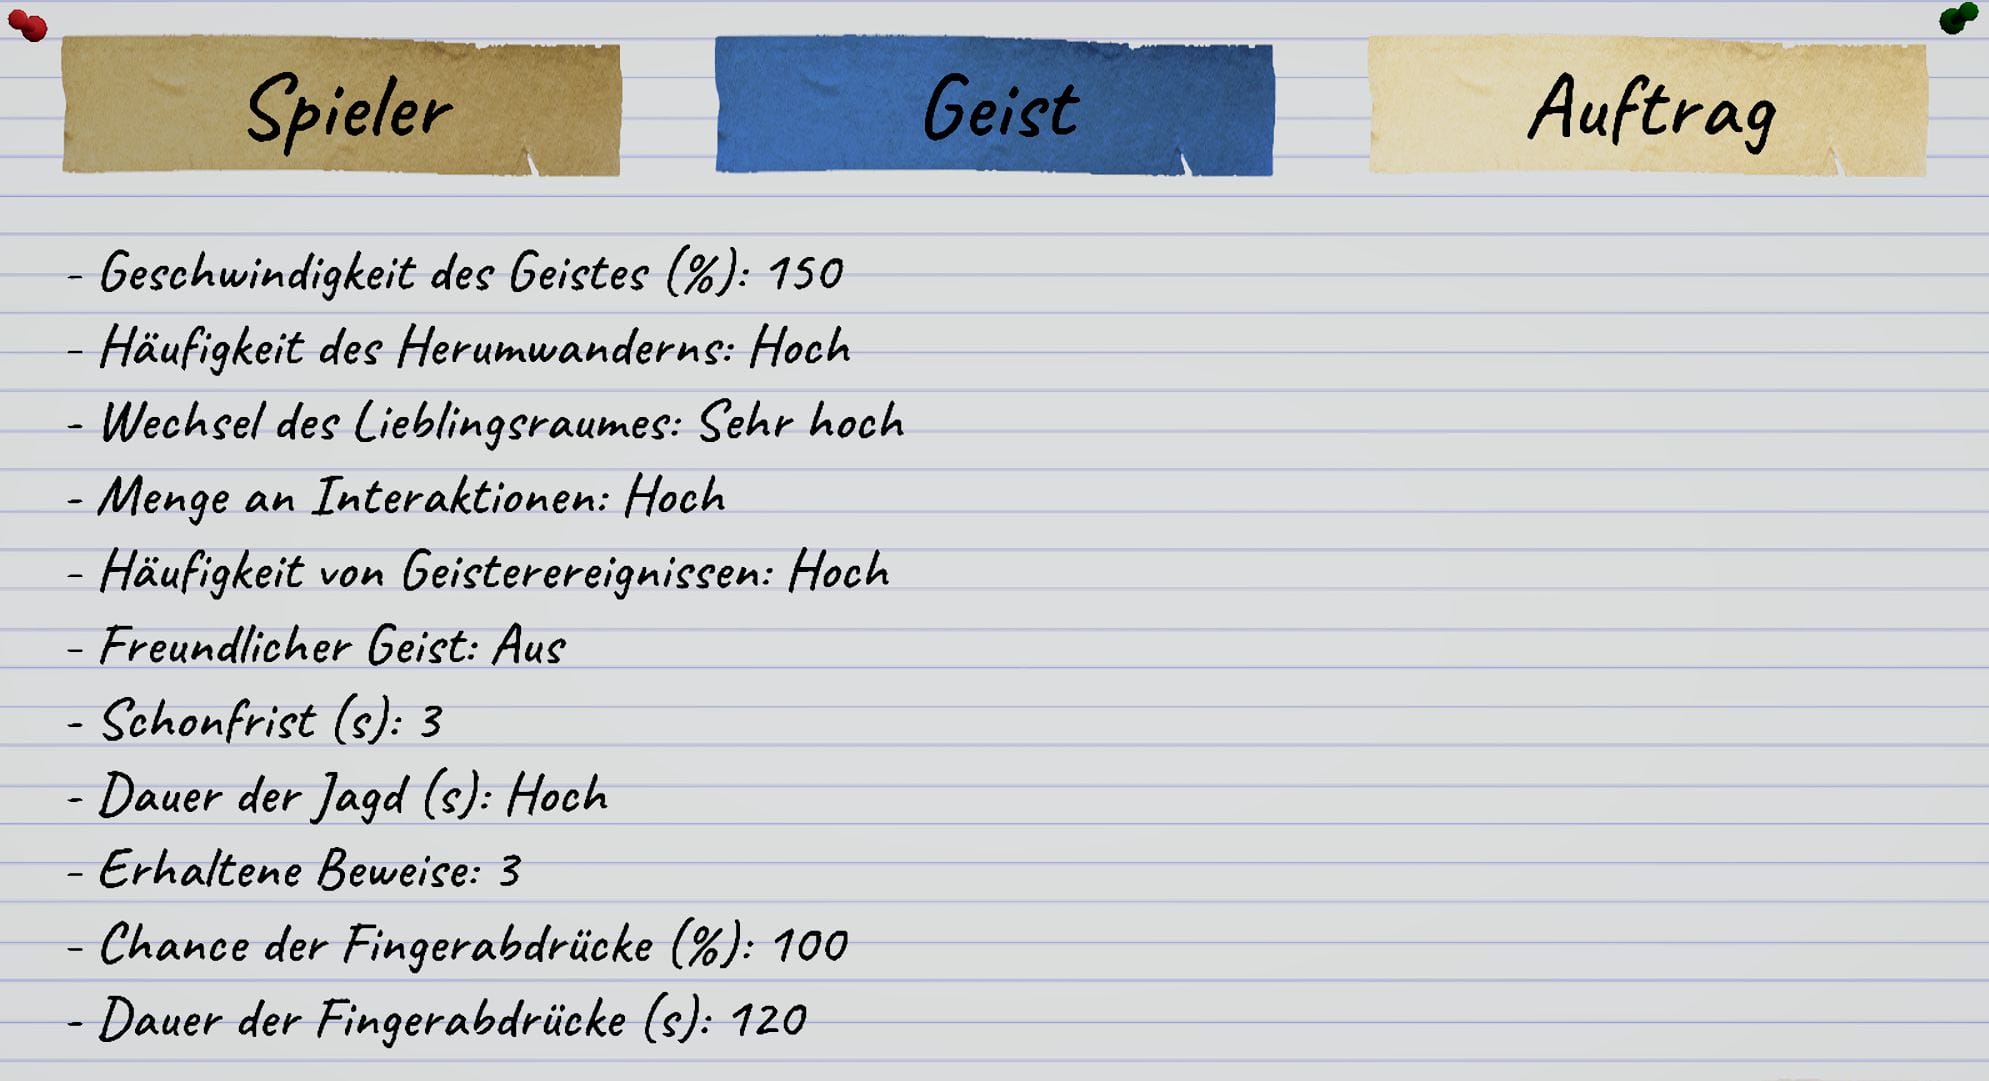 Spieler Geist Auftrag
- Geschwindigkeit des Geistes (%): 150
- Häufigkeit des Herumwanderns: Hoch
- Wechsel des Lieblingsraumes: Sehr hoch
- Menge an Interaktionen: Hoch
- Häufigkeit von Geisterereignissen: Hoch
- Freundlicher Geist: Aus
- Schonfrist (s): 3
- Dauer der Jagd (s): Hoch
- Erhaltene Beweise: 3
- Chance der Fingerabdrücke (%): 100
- Dauer der Fingerabdrücke (s): 120